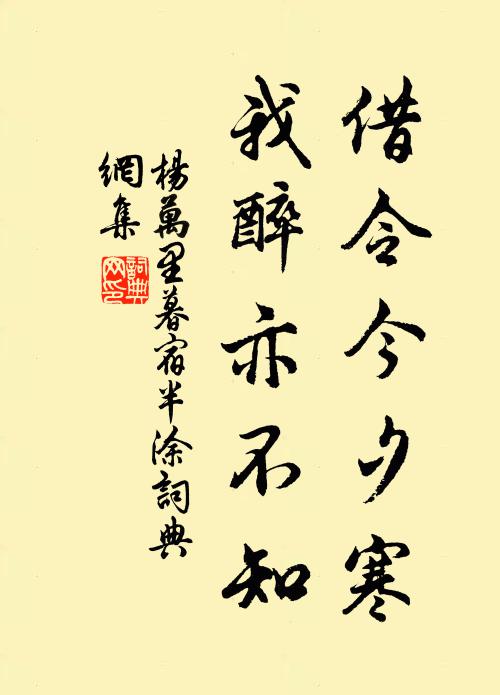 借令今夕寒
我醉亦不知
楊萬里暮宿半涂詞典
網集
詞典
网印